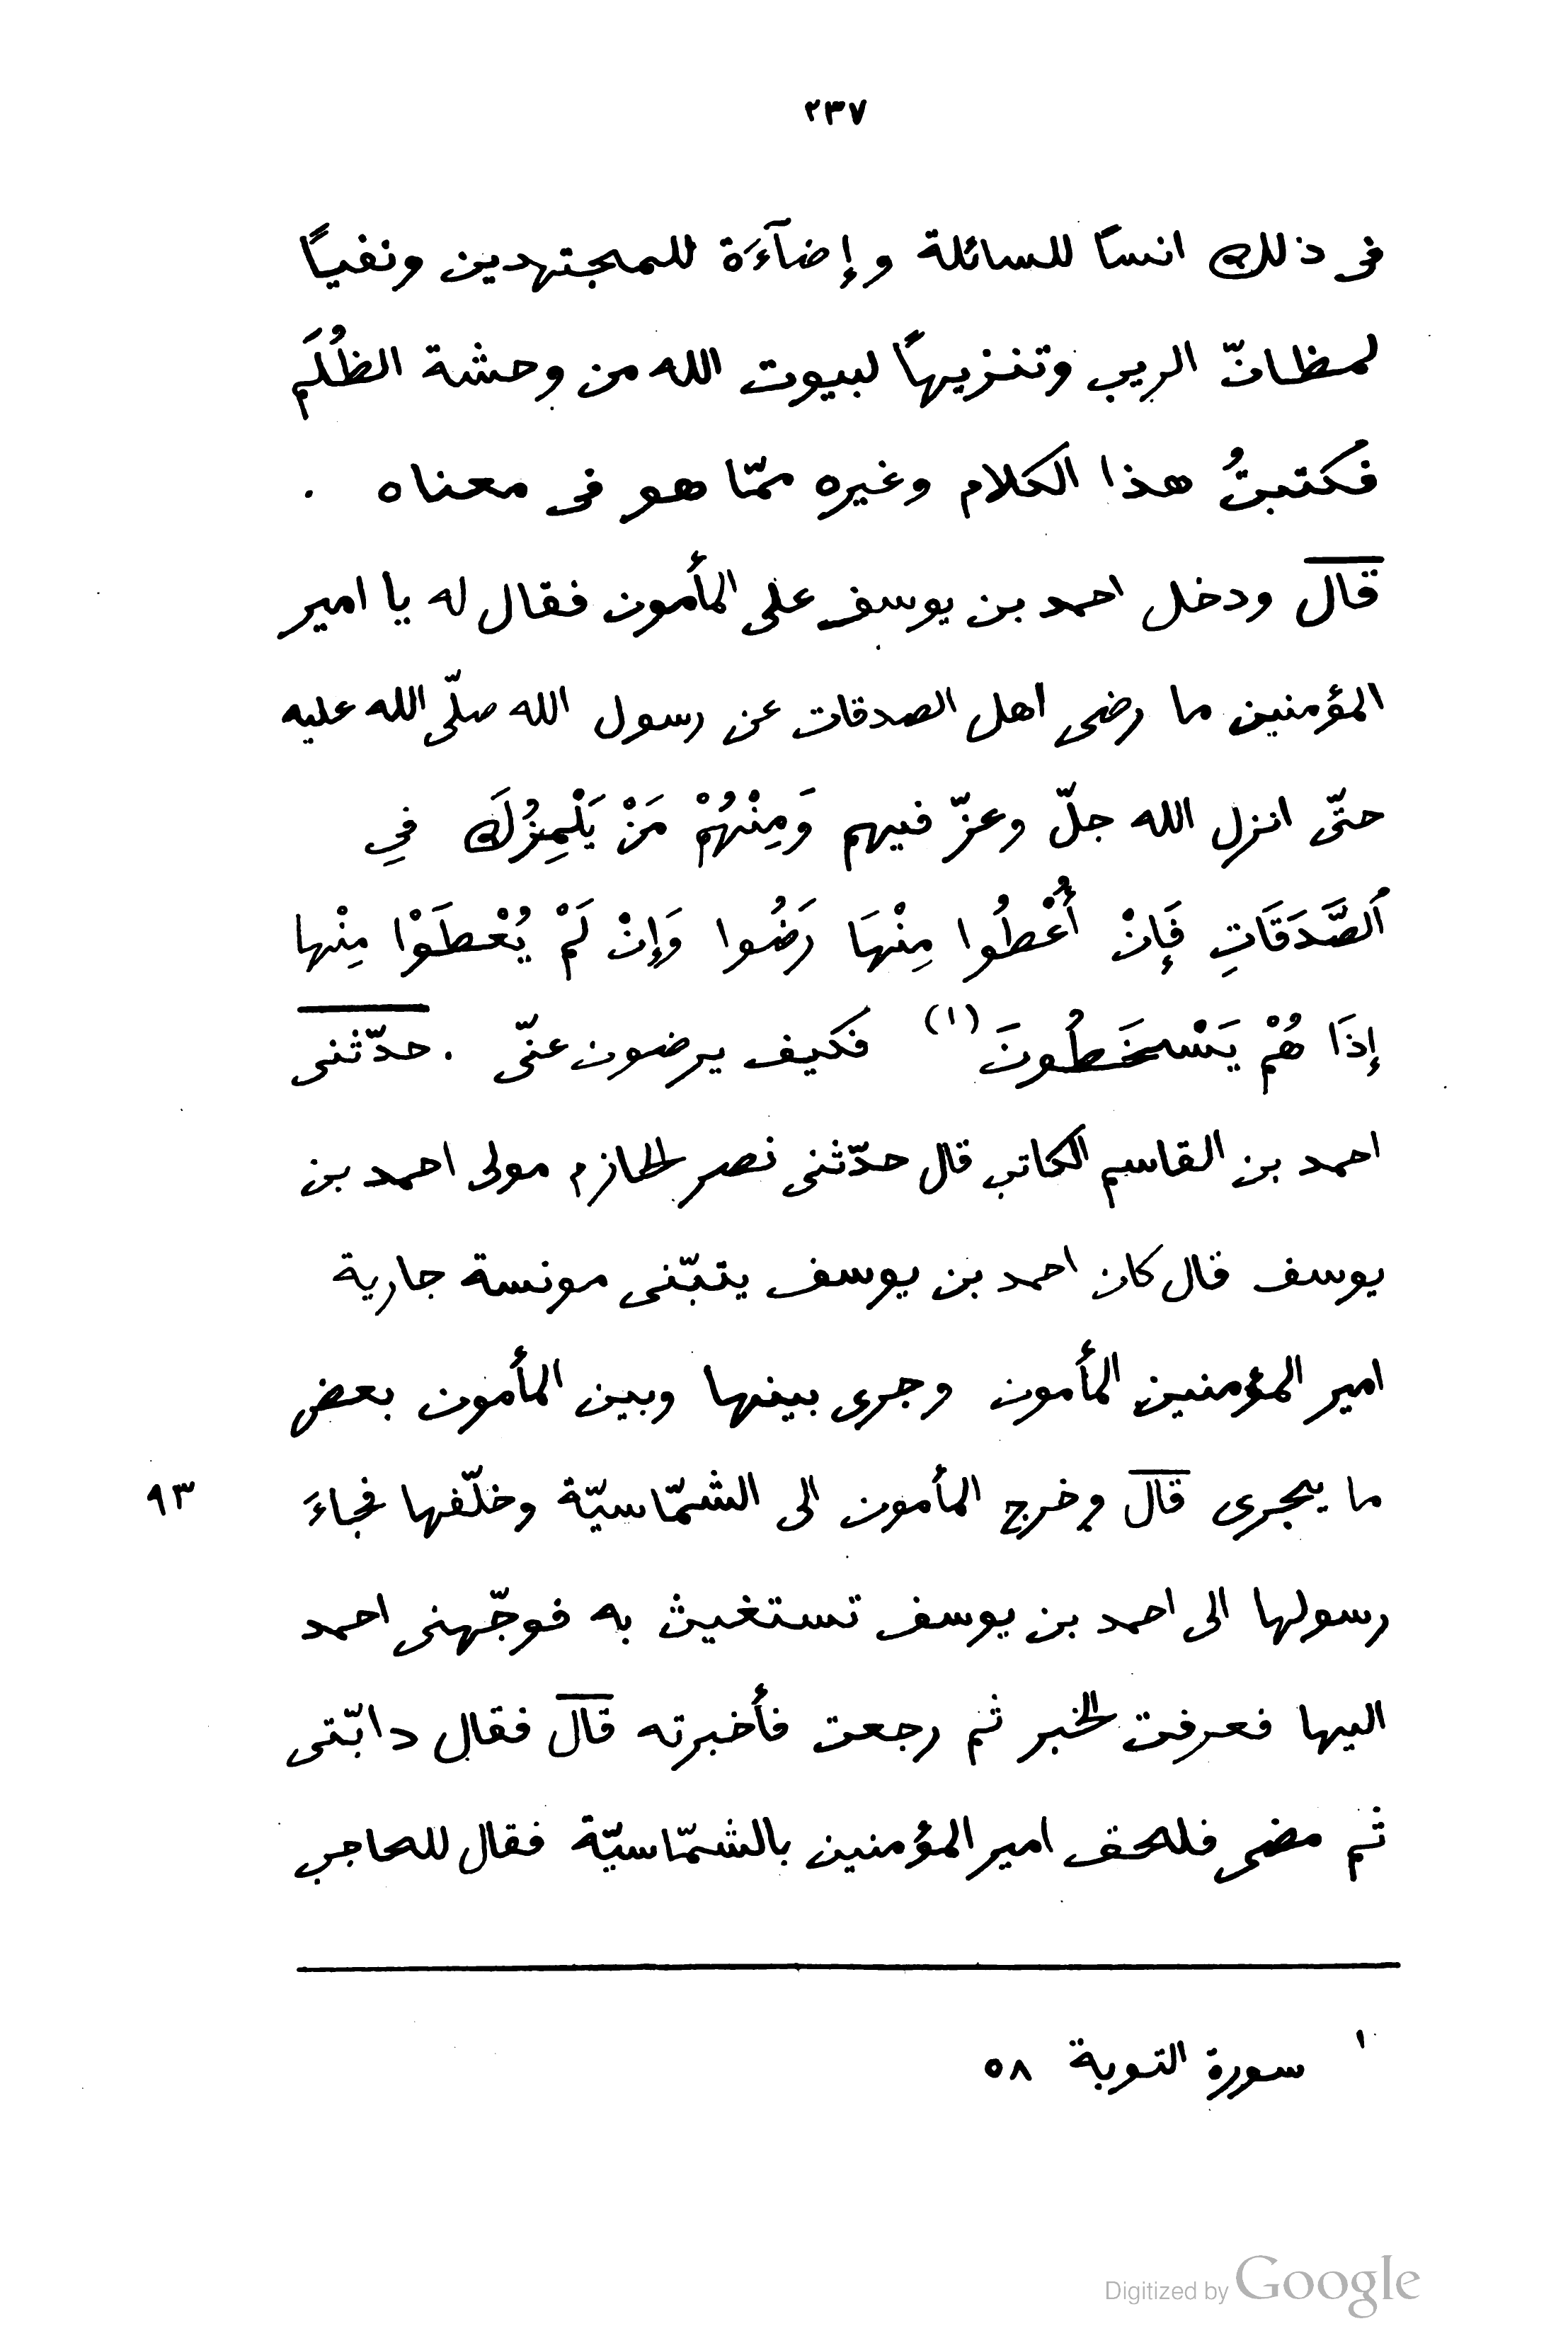 ٢٣٧
فى ذلك انسًا للسائلة وإضآءَة للمجتهدين ونفيًا
لمظانّ الريب وتنزيهًا لبيوت الله من وحشة الظُلَم
فكتبتُ هذا الكلام وغيره ممّا هو فى معناه .
قال ودخل احمد بن يوسف على المأمون فقال له يا امير
المؤمنين ما رضى اهل الصدقات عن رسول الله صلّى الله عليه
حتّى انزل الله جلّ وعزّ فيهم وَمِنْهُمْ مَنْ يَلْمِزُكَ فِي
ٱلصَّدَقَاتِ فَإِنْ أُعْطُوا مِنْهَا رَضُوا وَإِنْ لَمْ يُعْطَوْا مِنْها
إِذَا هُمْ يَسْخَطُونَ (١) فكيف يرضون عنّى . حدّثنى
احمد بن القاسم الكاتب قال حدّثنى نصر الخازم مولى احمد بن
يوسف قال كان احمد بن يوسف يتبّنى مونسة جارية
امير المؤمنين المأمون وجرى بينها وبين المأمون بعض
ما يجرى قال وخرج المأمون الى الشمّاسيّة وخلّفها فجاءَ ٩٣
رسولها الى احمد بن يوسف تستغيث به فوجّهنى احمد
اليها فعرفت الخبر ثم رجعت فأخبرته قال فقال دابّتى
ثم مضى فلحق امير المؤمنين بالشمّاسيّة فقال للحاجب
١ سورة التوبة ٥٨
Digitized by Google